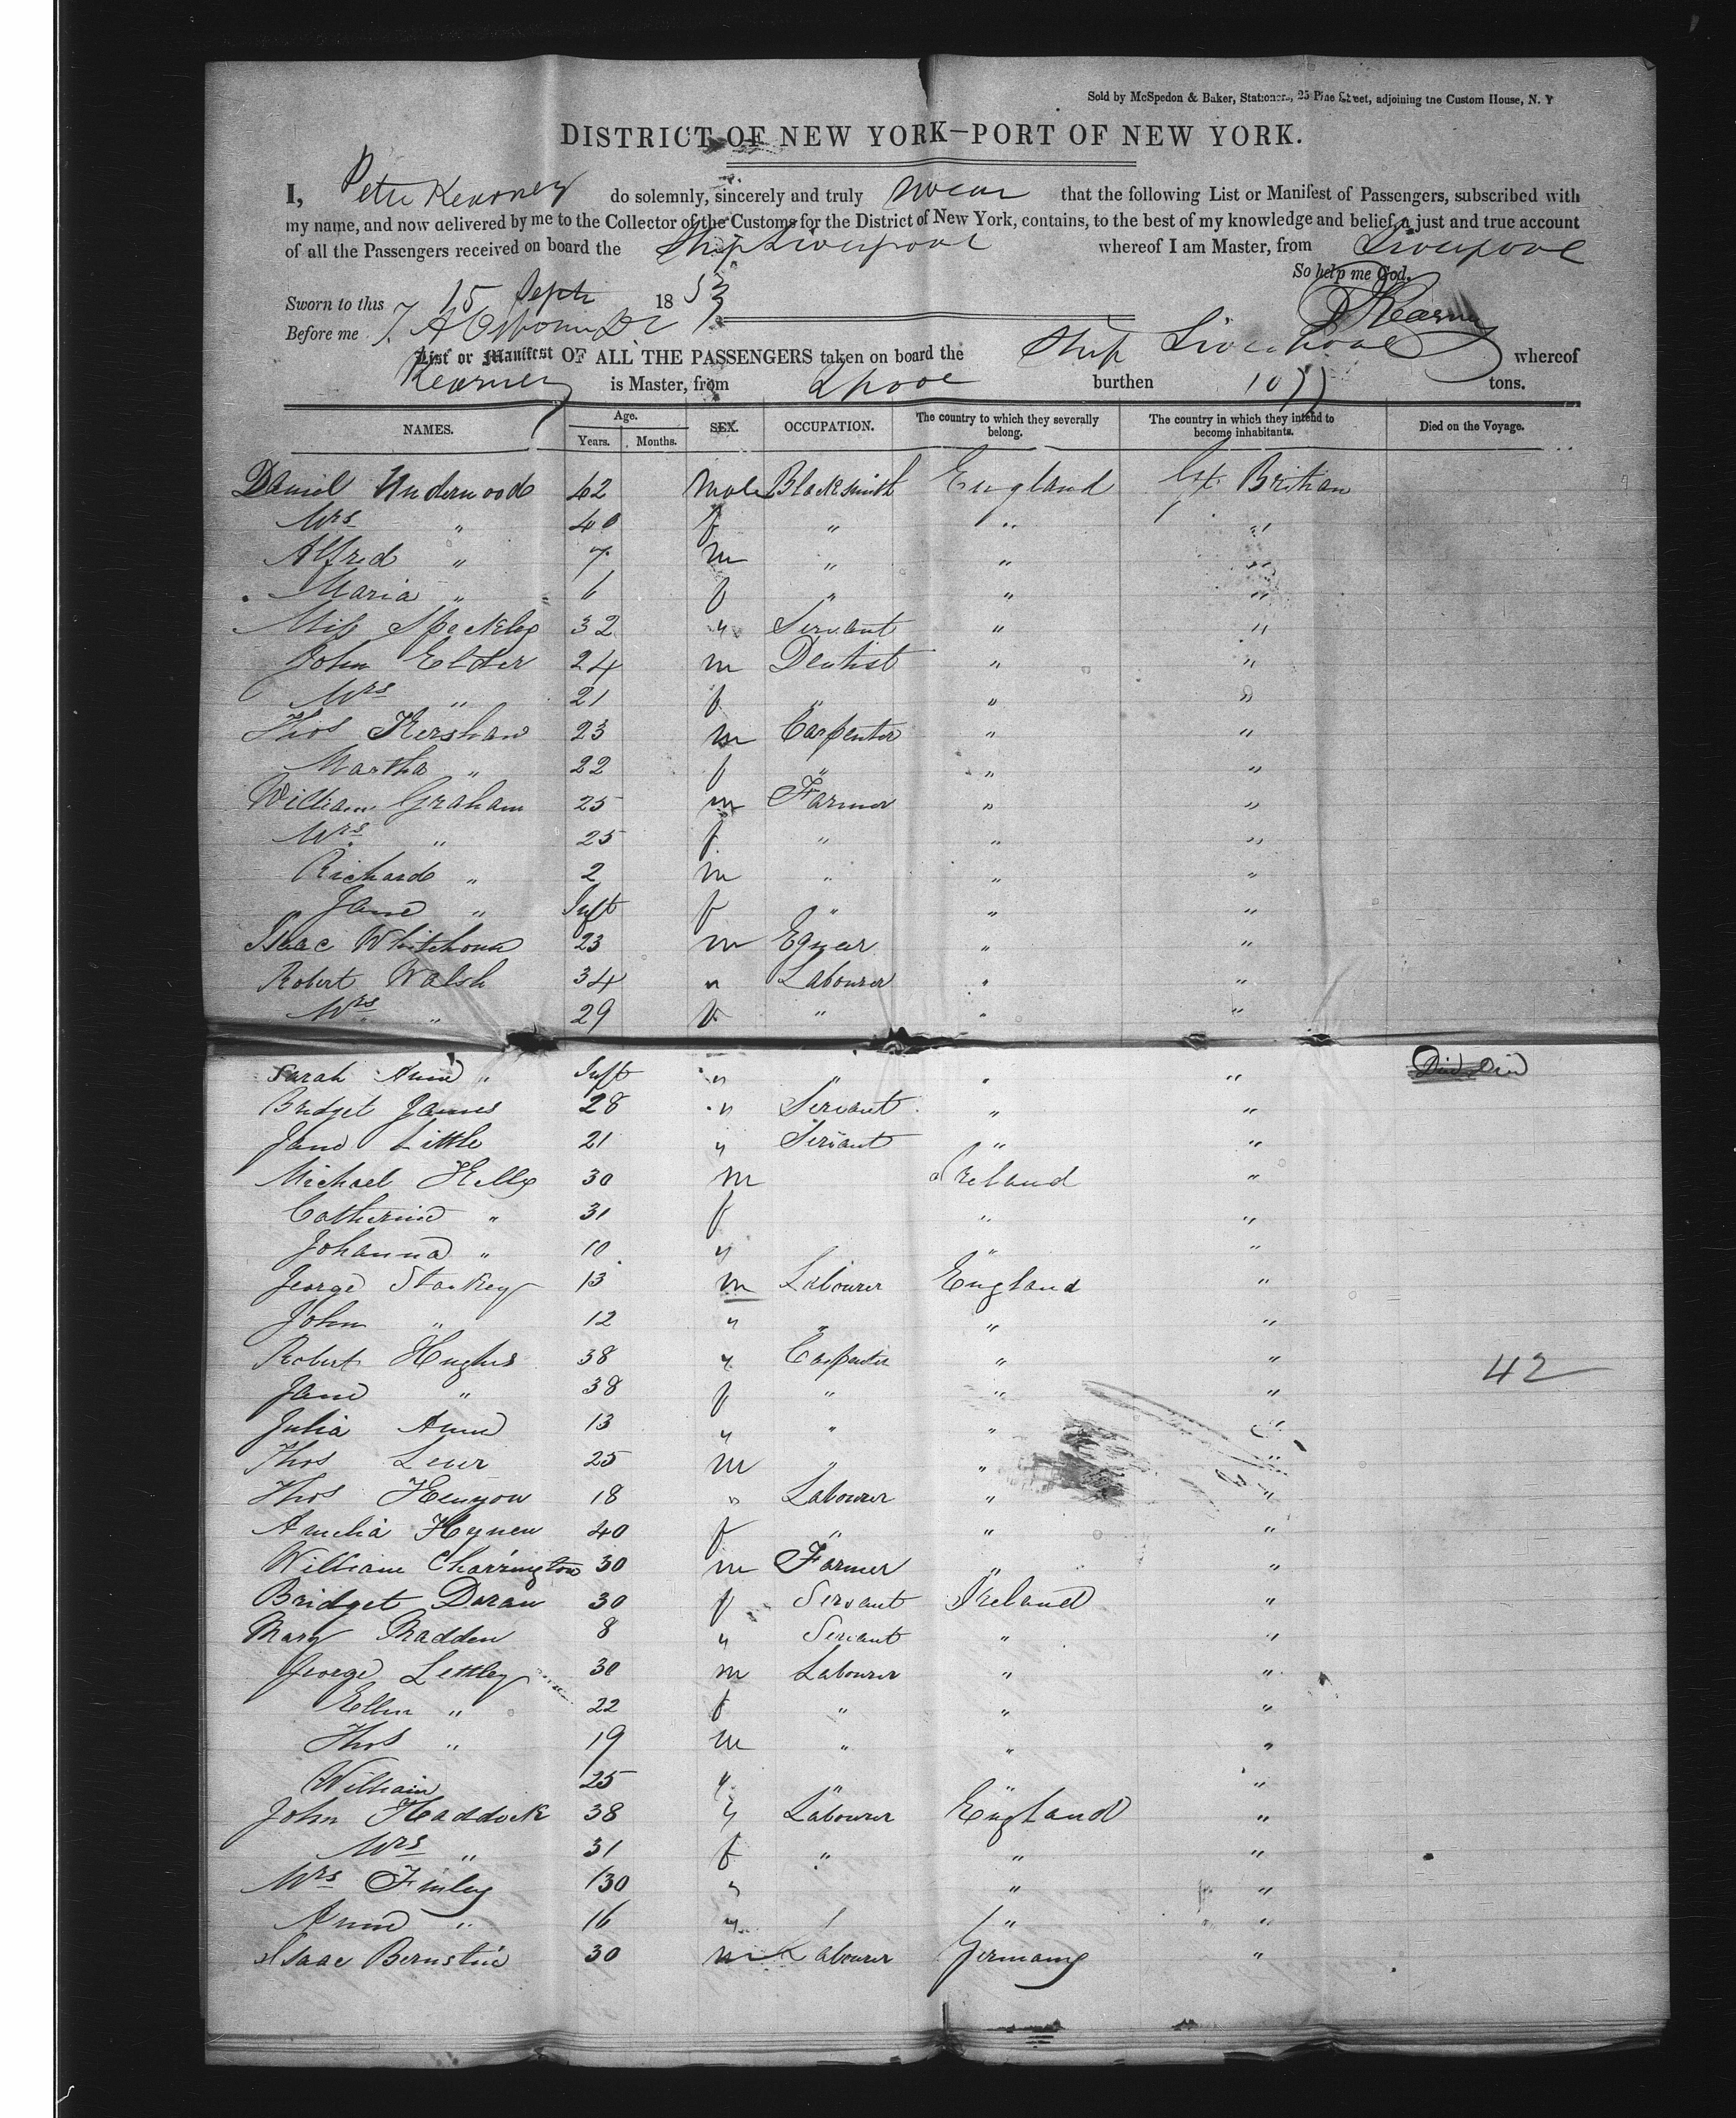 Sold by McSpedon & Baker, Stationers, 25 Pine Street, adjoining the Custom House, N. Y
DISTRICT OF NEW YORK—PORT OF NEW YORK.
I, Peter Kearney do solemnly, sincerely and truly swear that the following List or Manifest of Passengers, subscribed with
my name, and now delivered by me to the Collector of the Customs for the District of New York, contains, to the best of my knowledge and belief, a just and true account
of all the Passengers received on board the Ship Liverpool whereof I am Master, from Liverpool
So help me God.
Sworn to this 15 Sept 1853 P Kearney
Before me
List or Manifest OF ALL THE PASSENGERS taken on board the Ship Liverpool whereof
Kearney is Master, from Lpool burthen 1077 tons.
NAMES. Age. Years. Months. SEX. OCCUPATION. The country to which they severally belong. The country in which they intend to become inhabitants. Died on the Voyage.
Daniel Underwood 42 Male Blacksmith England Gt. Britian
Mrs " 40 f " " "
Alfred " 7 m " " "
Maria " 6 f " " "
Miss Speckley 32 " Servant " "
John Elder 24 m Dentist " "
Mrs " 21 f " " "
Thos Kershaw 23 m Carpenter " "
Martha " 22 f " " "
William Graham 25 m Farmer " "
Mrs " 25 f " " "
Richard " 2 m " " "
Jane " Inft f " " "
Isaac Whitehouse 23 m " "
Robert Walsh 34 " Labourer " "
Mrs " 29 f " " "
Sarah Ann " Inft " " " " Died
Bridget James 28 " Servant " "
Jane Little 21 " Servant " "
Michael Kelly 30 m Ireland "
Catherine " 31 f " "
Johanna " 10 " " "
George Starkey 13 m Labourer England "
John " 12 " " " "
Robert Hughes 38 " Carpenter " "
Jane " 38 f " " " 42
Julia Ann 13 " " " "
Thos 25 m " " "
Thos Kenyon 18 " Labourer " "
Amelia 40 f " " "
William Charrington 30 m Farmer " "
Bridget Doran 30 f Servant Ireland "
Mary Madden 8 " Servant " "
George Lettley 30 m Labourer " "
Ellen " 22 f " " "
Thos " 19 m " " "
William 25 " " " "
John Haddock 38 " Labourer England "
Mrs " 31 f " " "
Mrs Finley 30 " " "
Ann " 16 " " "
Isaac Bernstin 30 m Labourer Germany "